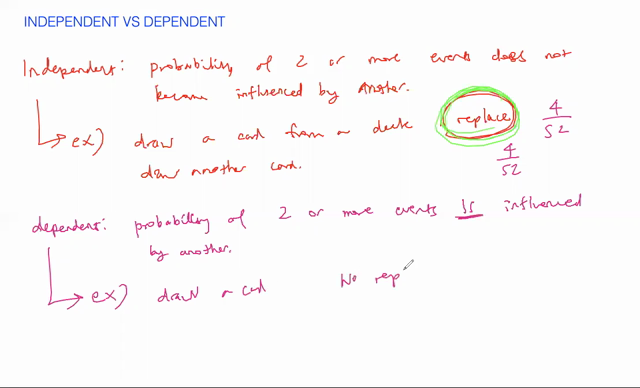 INDEPENDENT VS DEPENDENT
Independent: probability of 2 or more events does not
become influenced by Another.
ex) draw a card from a deck replace 4/52
draw another card. 4/52
dependent: probability of 2 or more events is influenced
by another.
ex) draw a card No rep